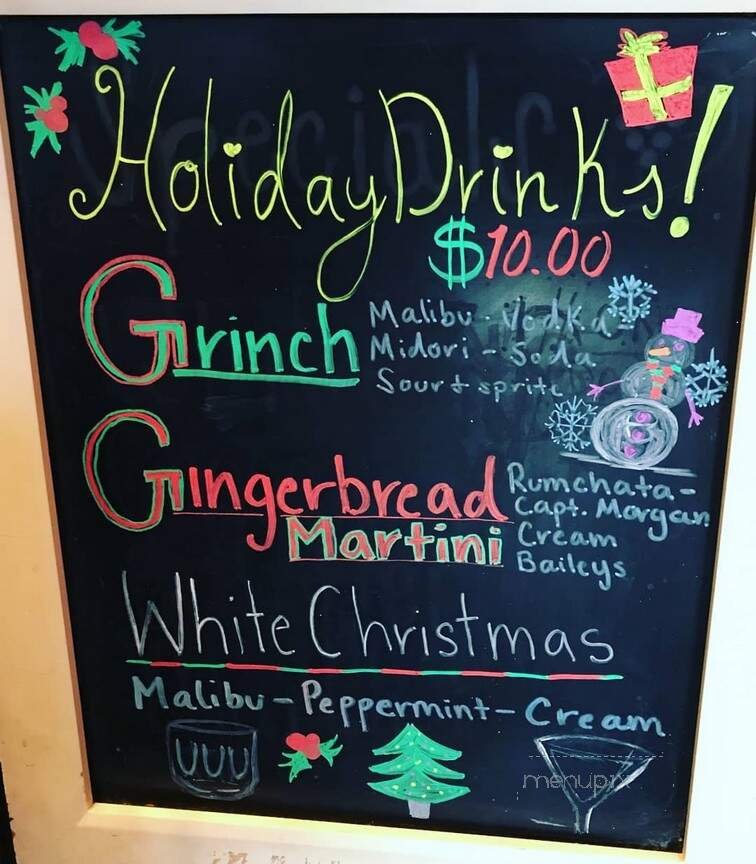 Holiday Drinks!
$10.00
Grinch
Malibu - Vodka -
Midori - Soda
Sour + sprite
Gingerbread
Martini
Rumchata -
Capt. Morgan
Cream
Baileys
White Christmas
Malibu - Peppermint - Cream
menupix